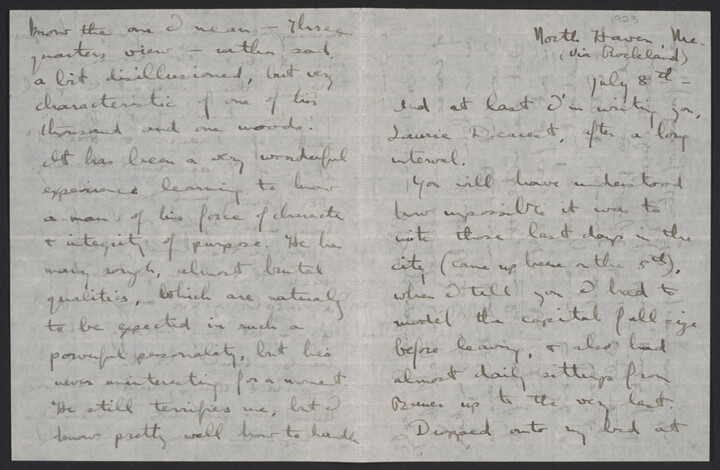 know the one I mean – three
quarters view – rather sad,
a bit disillusioned, but very
characteristic of one of his
thousand and one moods.
It has been a very wonderful
experience learning to know
a man of his force of character
& integrity of purpose. He has
many rough, almost brutal
qualities, which are naturally
to be expected in such a
powerful personality, but he's
never uninteresting for a moment
He still terrifies me, but I
know pretty well how to handle
1923
North Haven, Me.
(via Rockland)
July 8th –
And at last I'm writing you,
Laurie Dearest, after a long
interval.
You will have understood
how impossible it was to
write those last days in the
city (came up here on the 5th),
when I tell you I had to
model the capital full size
before leaving, & also had
almost daily sittings from
up to the very last.
Dropped onto my bed at